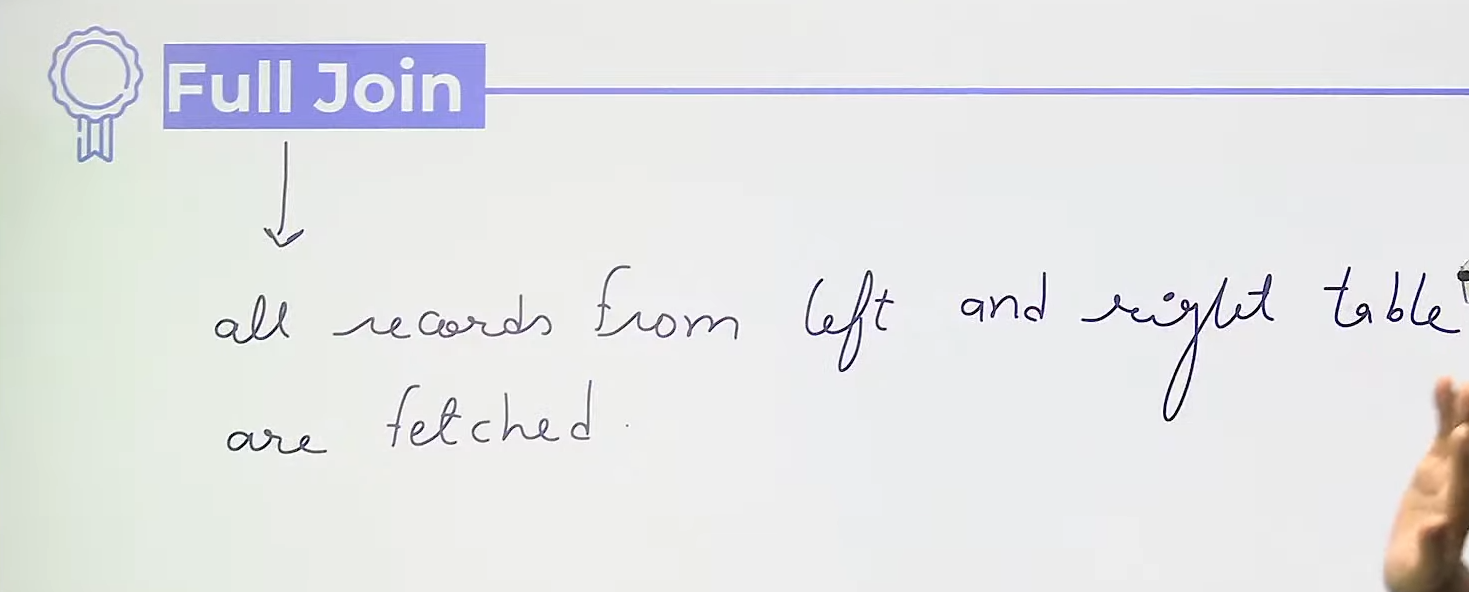 Full Join
all records from left and right table
are fetched.